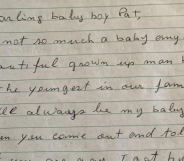 arling baby boy Pat,
not so much a baby any
autiful grown up man b
he youngest in our fam
ll always be my baby
en you come out and tol